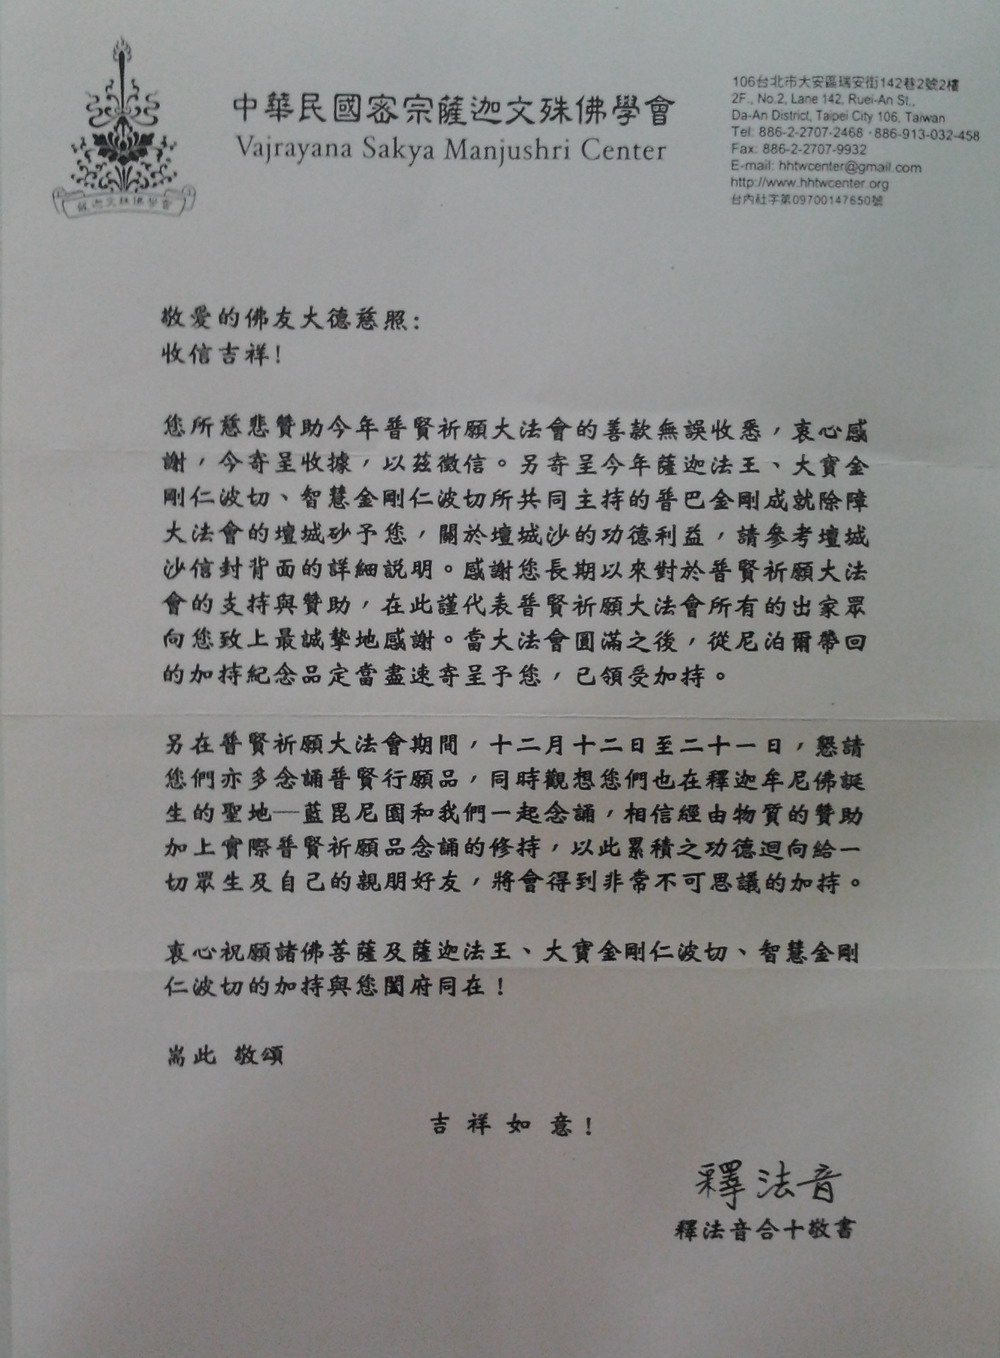 中華民國密宗薩迦文殊佛學會
Vajrayana Sakya Manjushri Center
薩迦文殊佛學會
106台北市大安區瑞安街142巷2號2樓
2F., No.2, Lane 142, Ruei-An St.,
Da-An District, Taipei City 106, Taiwan
Tel: 886-2-2707-2468・886-913-032-458
Fax: 886-2-2707-9932
E-mail: hhtwcenter@gmail.com
http://www.hhtwcenter.org
台內社字第09700147650號
敬愛的佛友大德慈照:
收信吉祥!
您所慈悲贊助今年普賢祈願大法會的善款無誤收悉，衷心感
謝，今寄呈收據，以茲徵信。另寄呈今年薩迦法王、大寶金
剛仁波切、智慧金剛仁波切所共同主持的普巴金剛成就除障
大法會的壇城砂予您，關於壇城沙的功德利益，請參考壇城
沙信封背面的詳細說明。感謝您長期以來對於普賢祈願大法
會的支持與贊助，在此謹代表普賢祈願大法會所有的出家眾
向您致上最誠摯地感謝。當大法會圓滿之後，從尼泊爾帶回
的加持紀念品定當盡速寄呈予您，已領受加持。
另在普賢祈願大法會期間，十二月十二日至二十一日，懇請
您們亦多念誦普賢行願品，同時觀想您們也在釋迦牟尼佛誕
生的聖地─藍毘尼園和我們一起念誦，相信經由物質的贊助
加上實際普賢祈願品念誦的修持，以此累積之功德迴向給一
切眾生及自己的親朋好友，將會得到非常不可思議的加持。
衷心祝願諸佛菩薩及薩迦法王、大寶金剛仁波切、智慧金剛
仁波切的加持與您闔府同在！
耑此 敬頌
吉祥如意!
釋法音
釋法音合十敬書